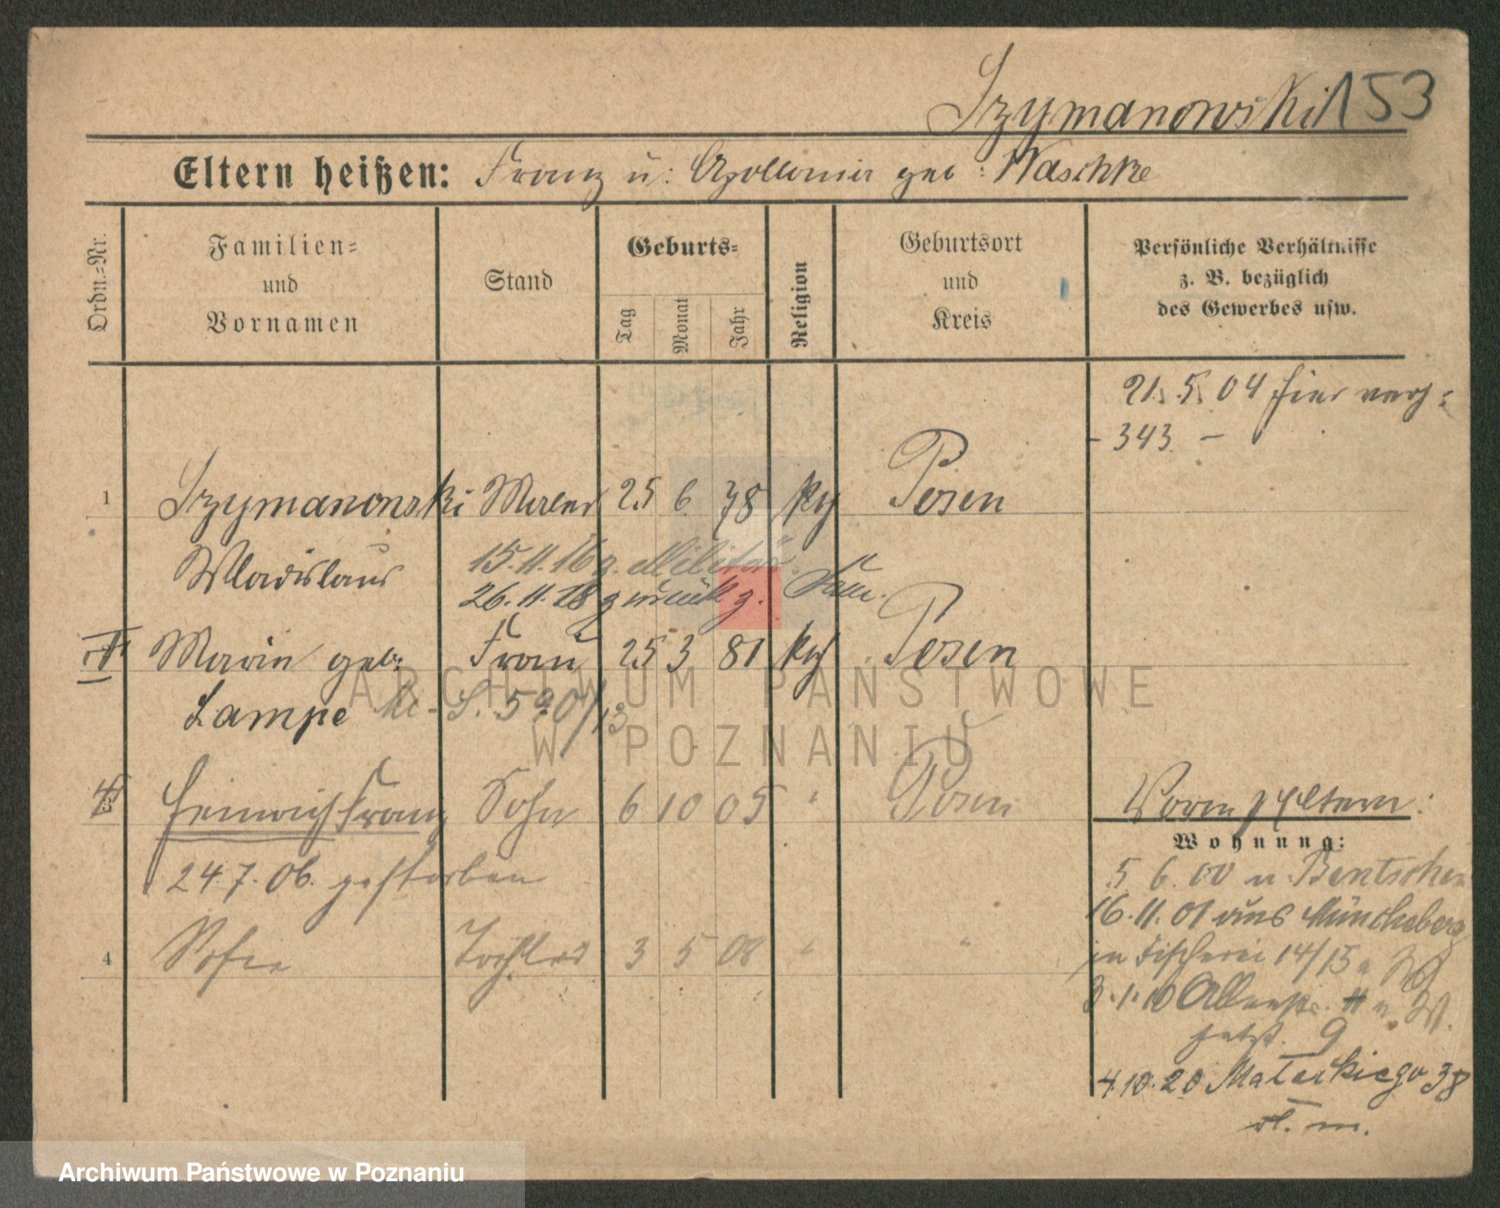 Szymanowski 153
Eltern heißen: Franz u: Apollonia geb: Waschke
Ordn.-Nr.
Familien-
und
Vornamen
Stand
Geburts-
Tag
Monat
Jahr
Religion
Geburtsort
und
Kreis
Persönliche Verhältnisse
z. B. bezüglich
des Gewerbes usw.
21.5.04 hier verh:
- 343 -
1 Szymanowski Maler 25 6 78 kth Posen
Wladislaus 15.11.16 z. Militär
26.11.18 zurück z. Fam.
Maria geb: Frau 25 3 81 kth Posen
Lampe
3 Heinrich Franz Sohn 6 10 05 " Posen
24.7.06. gestorben
4 Sofie Tochter 3 5 08 " "
Vorm s/Eltern:
Wohnung:
5 6.00 n Bentschen
16.11.01 aus Müncheberg
in Fischerei 14/15
3.1.10
jetzt. 9
4.10.20 Matejkiego 38
ARCHIWUM PAŃSTWOWE
W POZNANIU
Archiwum Państwowe w Poznaniu